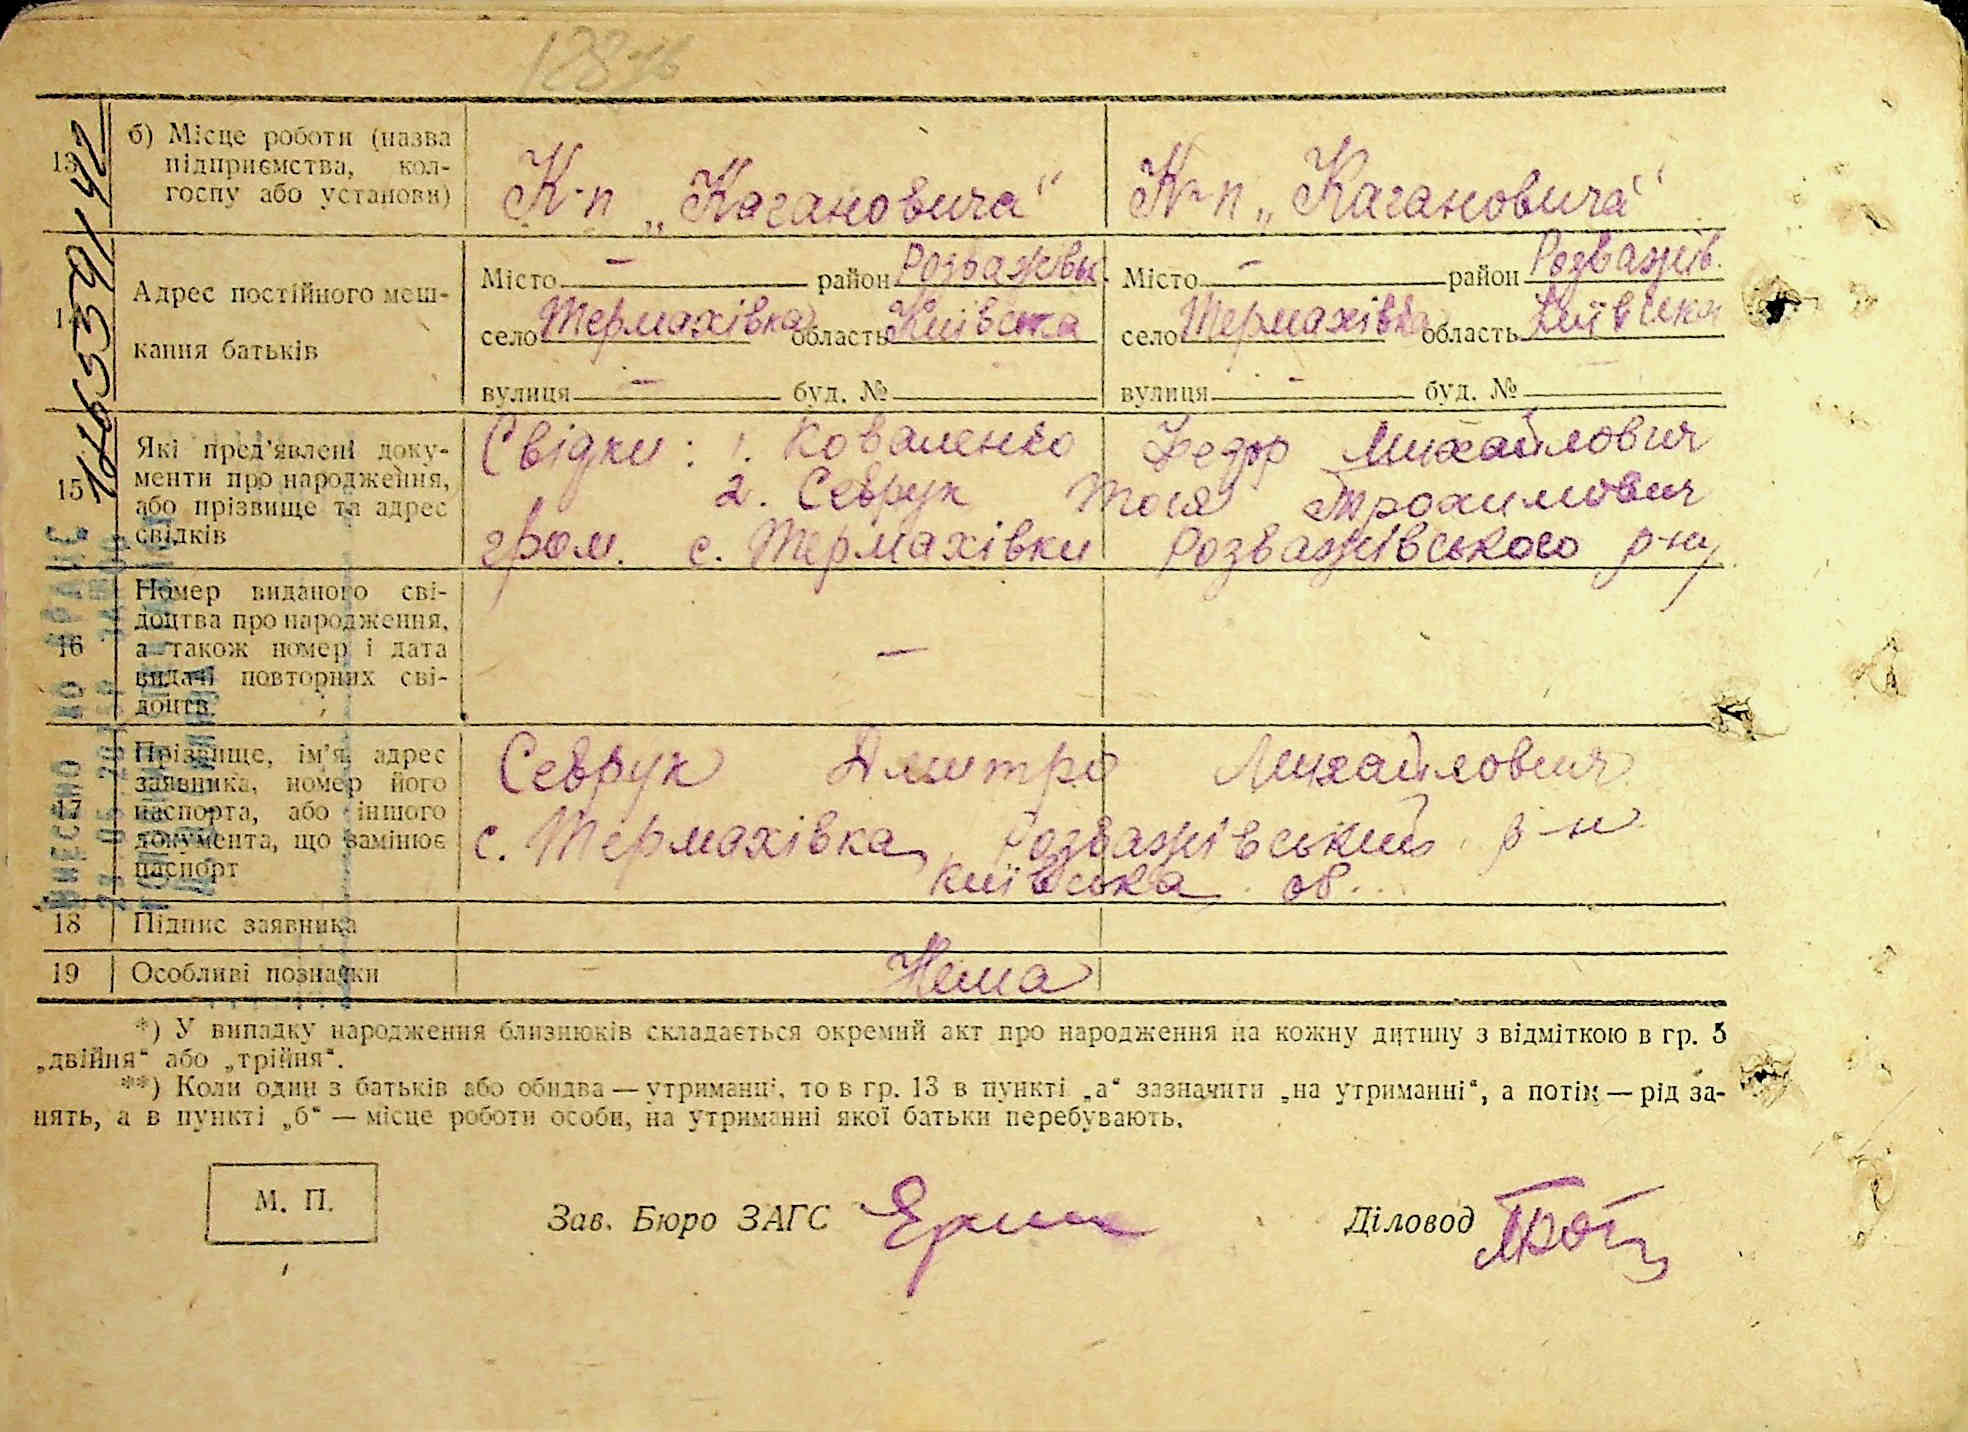 128
13 б) Місце роботи (назва підприємства, колгоспу або установи) К-п „Кагановича“ К-п „Кагановича“
Адрес постійного мешкання батьків
Місто — район Розважівськ. Місто — район Розважів.
село Термахівка область Київська село Термахівка область Київська
вулиця — буд. № вулиця - буд. №
15 Які пред'явлені документи про народження, або прізвище та адрес свідків
Свідки: 1. Коваленко Федор Михайлович
2. Севрук Тося Трохимович
гром. с. Термахівки Розважівського р-ну
16 Номер виданого свідоцтва про народження, а також номер і дата видачі повторних свідоцтв. —
17 Прізвище, ім'я, адрес заявника, номер його паспорта, або іншого документа, що замінює паспорт
Севрук Дмитро Михайлович
с. Термахівка, Розважівський р-н
Київська об.
18 Підпис заявника
19 Особливі познаяки Нема
*) У випадку народження близнюків складається окремий акт про народження на кожну дитину з відміткою в гр. 5
„двійня“ або „трійня“.
**) Коли один з батьків або обидва — утриманці, то в гр. 13 в пункті „а“ зазначити „на утриманні“, а потім — рід за-
нять, а в пункті „б“ — місце роботи особи, на утриманні якої батьки перебувають.
М. П. Зав. Бюро ЗАГС Діловод